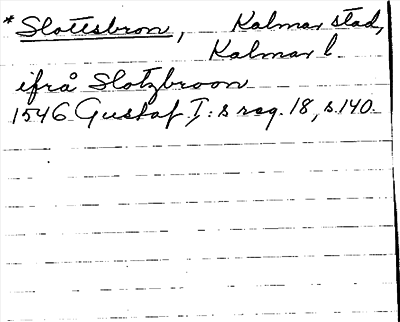 * Slottsbron, Kalmar stad,
Kalmar l.
ifrå Slotzbroon
1546 Gustaf I:s reg. 18, s. 140.